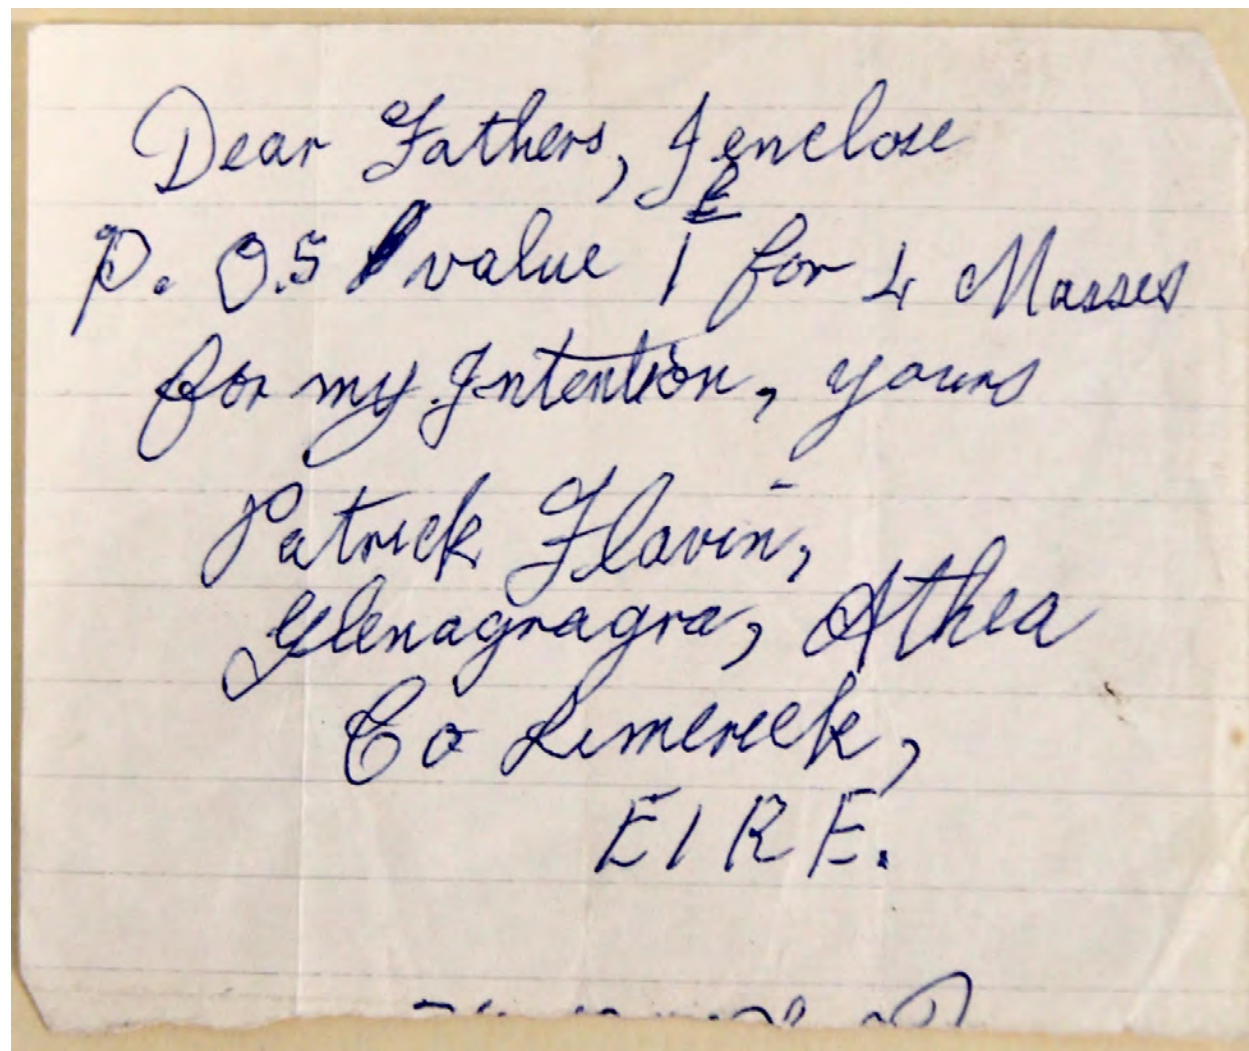 Dear Fathers, I enclose
P. O.S value 1£ for 4 Masses
for my Intention, yours
Patrick Flavin,
Glenagragra, Athea
Co Limerick,
EIRE.